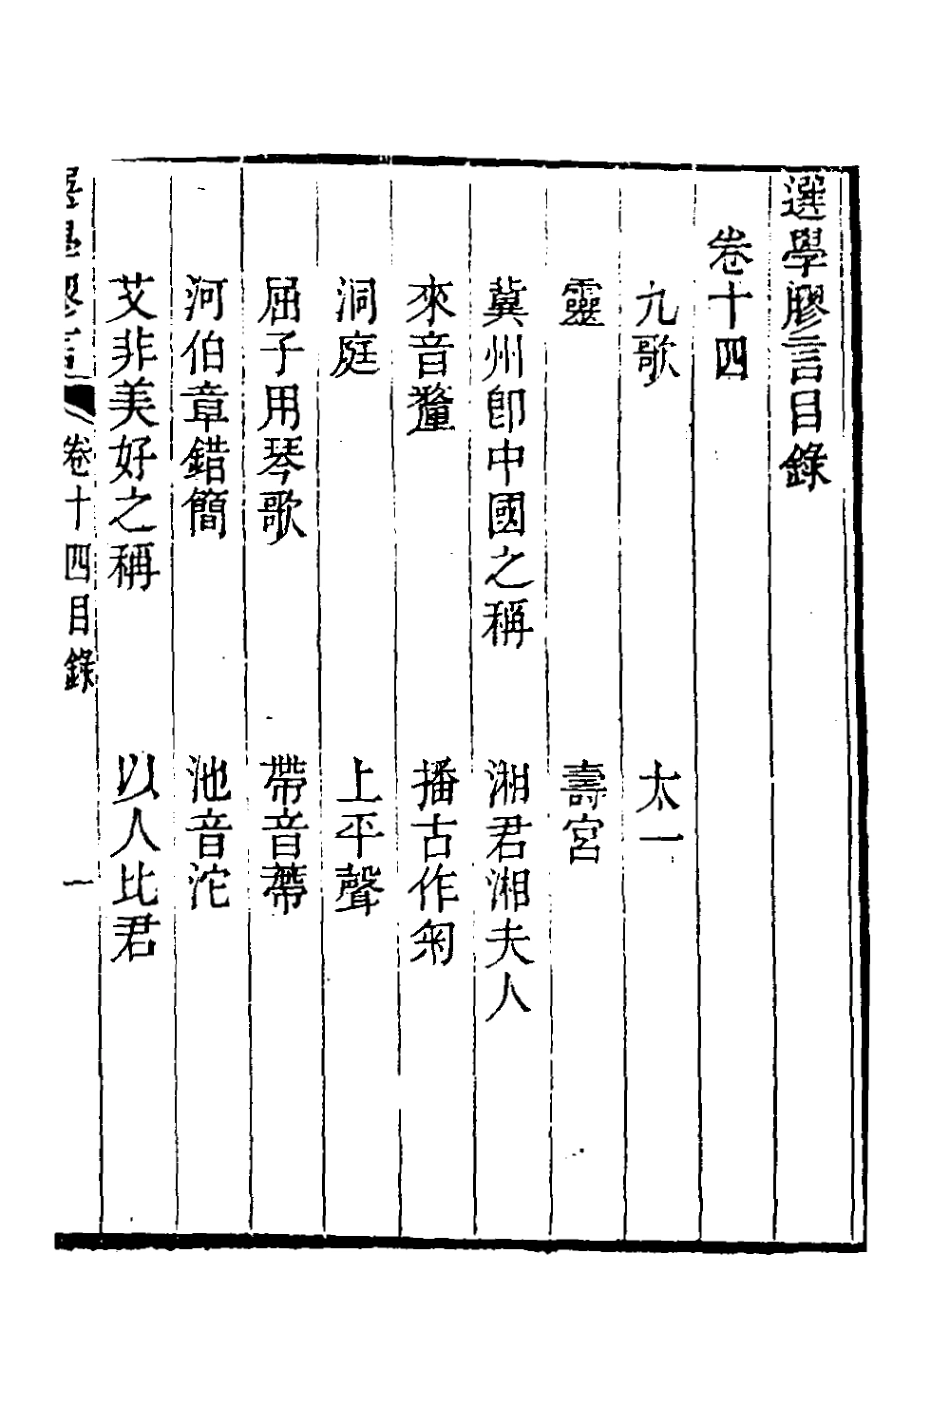 選學膠言目錄
卷十四
九歌　太一
靈　壽宮
冀州卽中國之稱　湘君湘夫人
來音釐　播古作匊
洞庭　上平聲
屈子用琴歌　帶音蔕
河伯章錯簡　池音沱
艾非美好之稱　以人比君
選學膠言　卷十四目錄　一